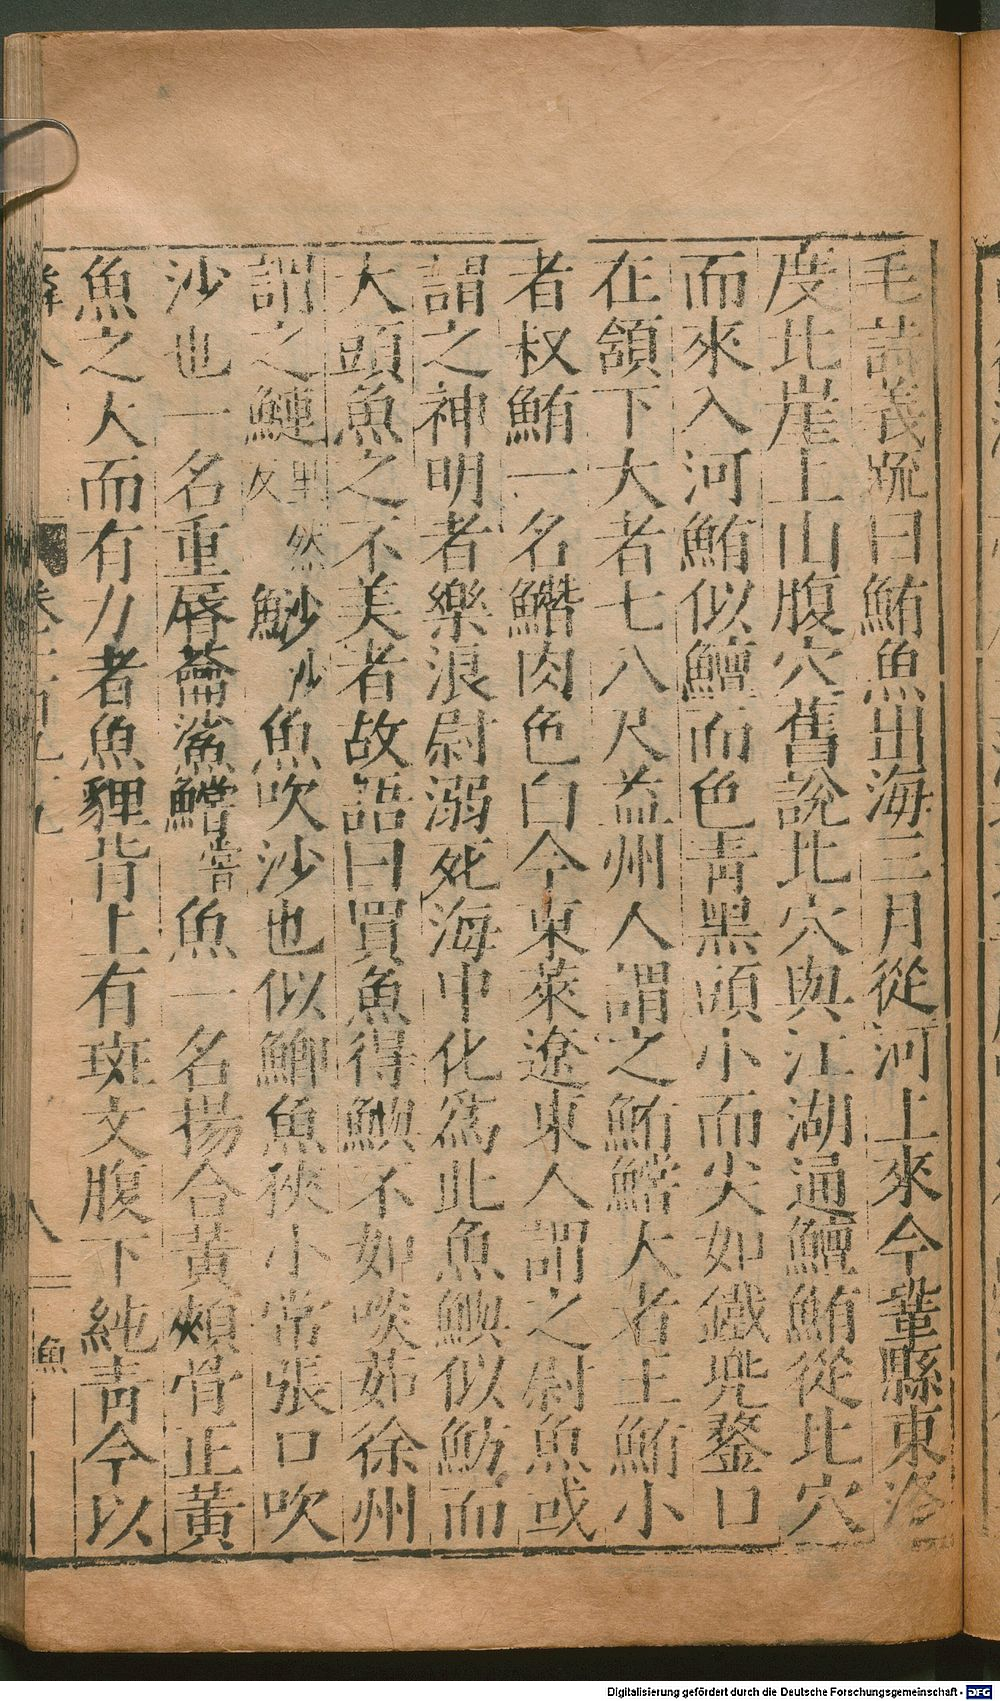 毛詩義疏曰鮪魚出海三月從河上來今鞏縣東洛
度北崖上山腹穴舊說北穴與江湖通鱣鮪從北穴
而來入河鮪似鱣而色青黑頭小而尖如鐵兜鍪口
在頷下大者七八尺益州人謂之鮪鰽大者王鮪小
者杈鮪一名鱕肉色白今東萊遼東人謂之尉魚或
謂之神明者樂浪尉溺死海中化爲此魚鱮似魴而
大頭魚之不美者故語曰買魚得鱮不如啖茹徐州
謂之鰱里然反魦沙魚吹沙也似鯽魚狹小常張口吹
沙也一名重脣蘥鯊鱨嘗魚一名揚合黃頰骨正黃
魚之大而有力者魚貍背上有斑文腹下純青今以
八
魚
Digitalisierung gefördert durch die Deutsche Forschungsgemeinschaft - DFG